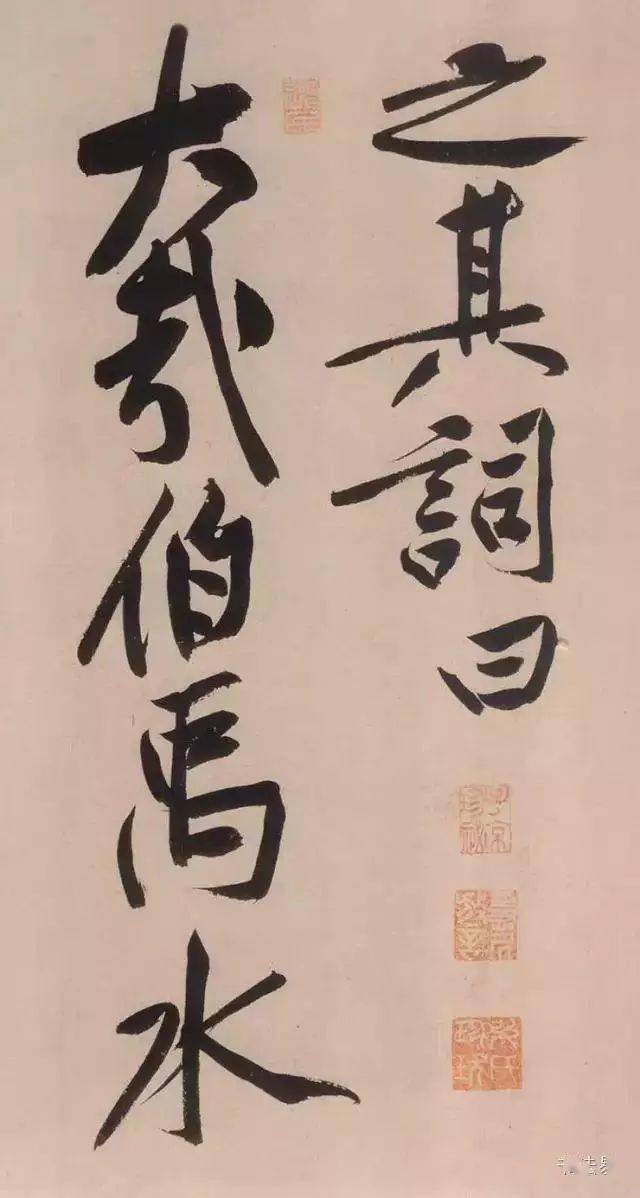 之其詞曰
大哉伯禹水